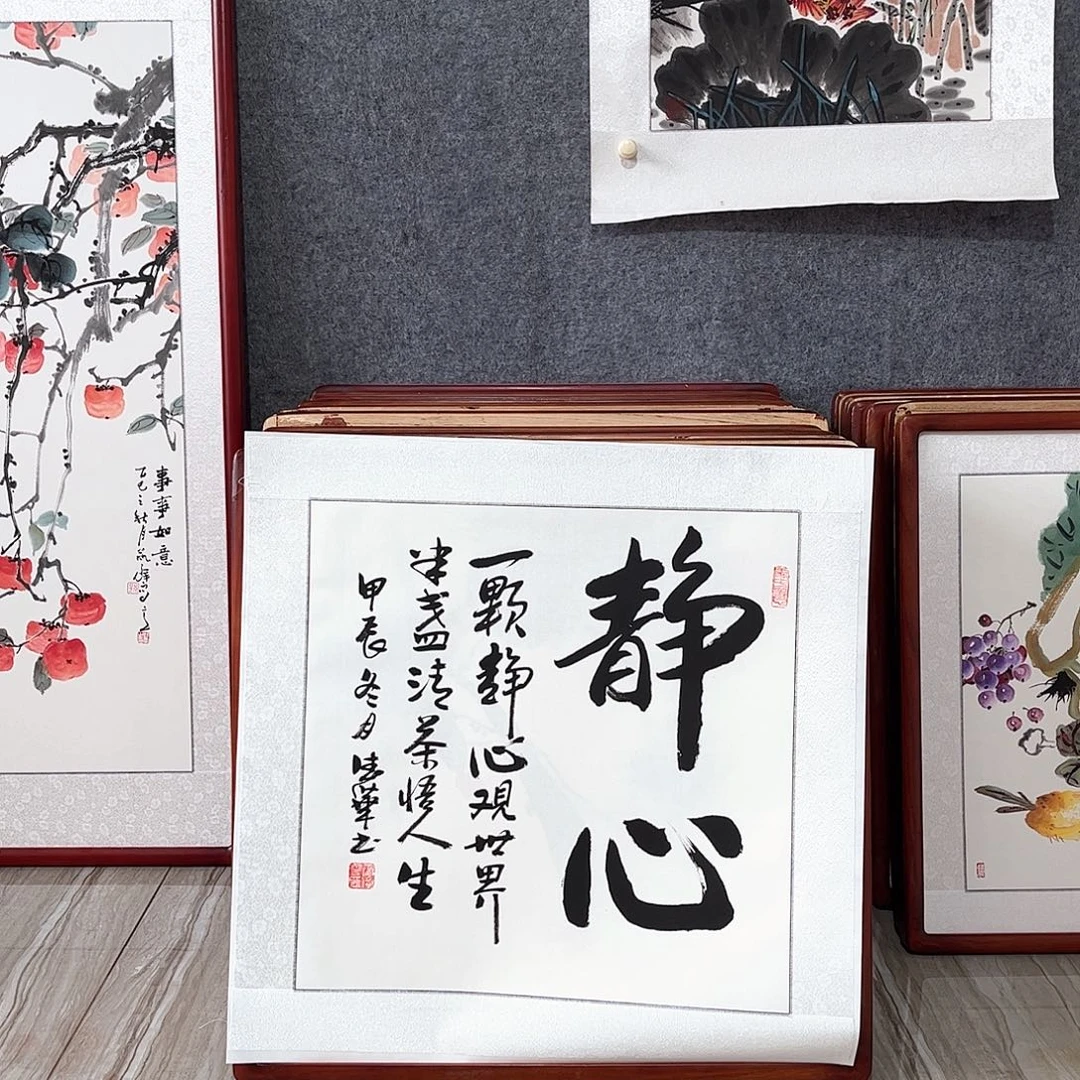 静心
一颗静心观世界
半盏清茶悟人生
甲辰冬月德華书
事事如意
乙巳之秋月